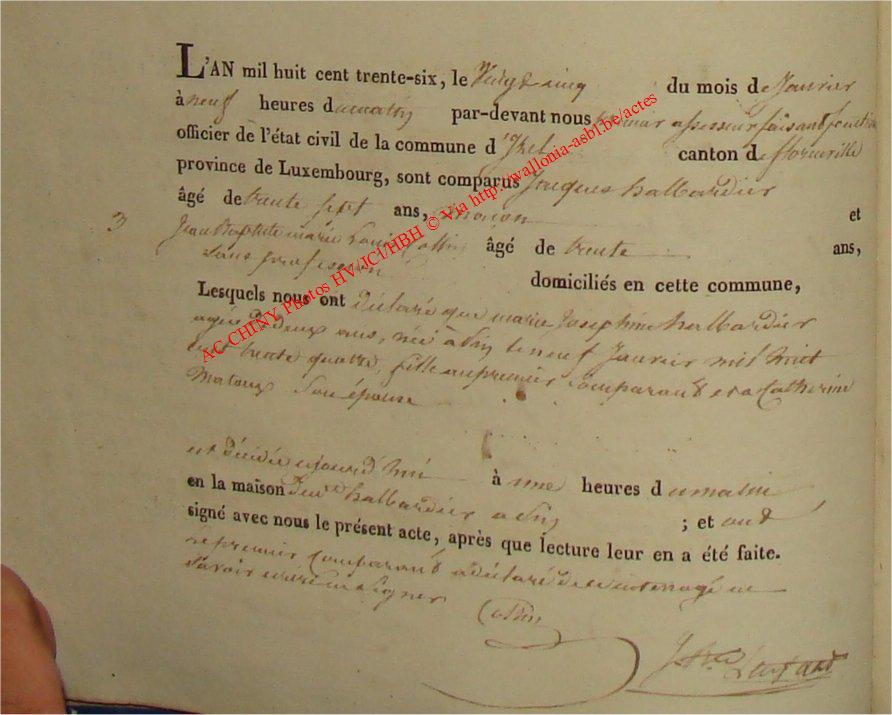 L'AN mil huit cent trente-six, le Vingt cinq du mois de Janvier
à neuf heures du matin par-devant nous assesseur faisant fonction
officier de l'état civil de la commune d'Izel canton de florenville
province de Luxembourg, sont comparus Jacques halbardier
âgé de trente sept ans, maçon et
3 Jean Baptiste marie Louis Collin âgé de trente ans,
sans profession domiciliés en cette commune,
Lesquels nous ont déclaré que marie Josephine halbardier
agée de deux ans, née à Pin le neuf Janvier mil huit
cent trente quatre, fille au premier comparant et a Catherine
son épouse
est décédée aujourd'hui à une heures du matin
en la maison dud. halbardier a Pin ; et ont
signé avec nous le présent acte, après que lecture leur en a été faite.
le premier comparant a déclaré de ce interrogé ne
savoir écrire ni signer
Collin
AC CHINY Photos HV/JCl/HBH © Via http://wallonia-asbl.be/actes